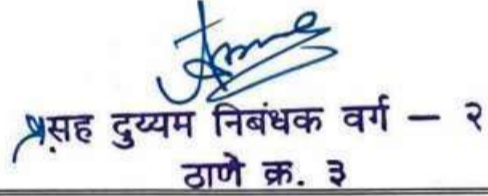 प्र.सह दुय्यम निबंधक वर्ग – २
ठाणे क्र. ३